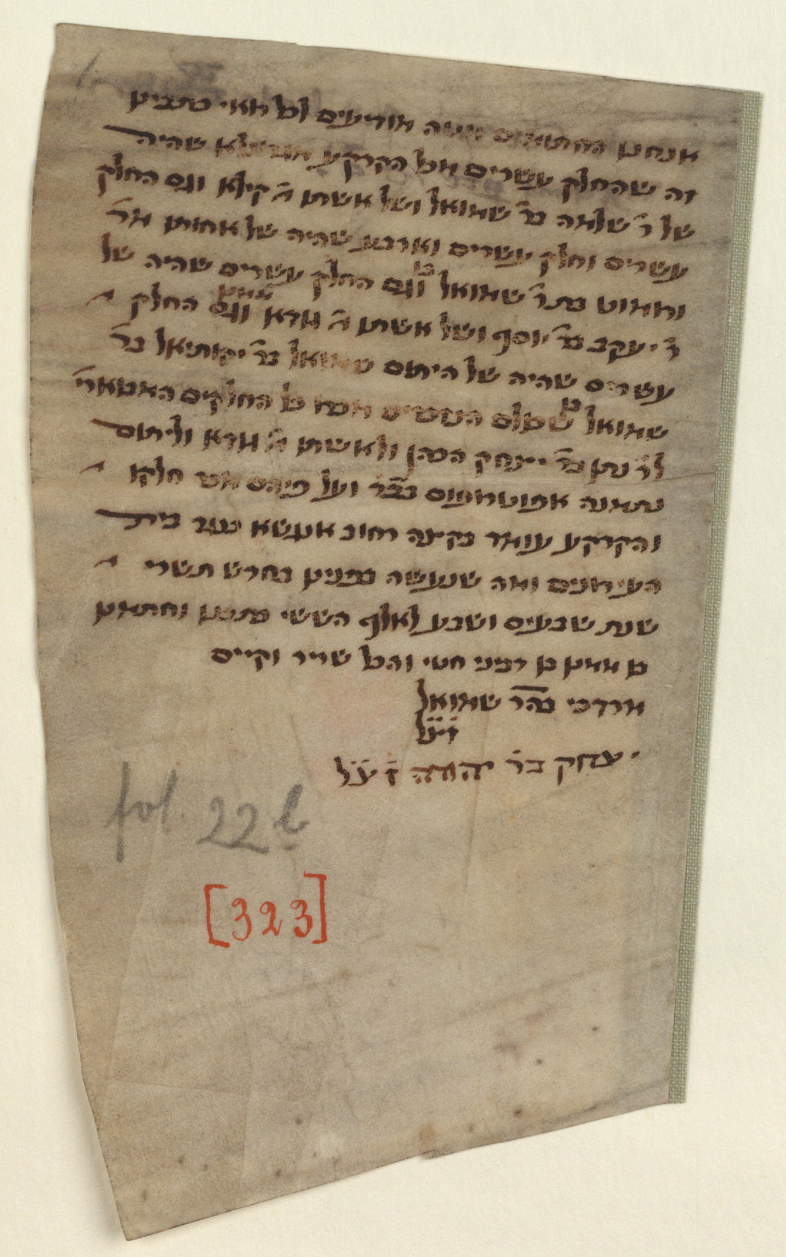 אנחנו החתומים מטה מודיעים לכל רואי כתבינו
זה שהחלק עשרים מכל הקרקע שהיה
של ר' שלמה בר' שמואל ושל אשתו מ' קילא וגם החלק
עשרים וחלק עשרים וארבע שהיה של אחותו מר'
בתר' שמואל וגם החלק עשרים שהיה של
ר' יעקב בר' יוסף ושל אשתו מ' גודא וגם החלק
עשרים שהיה של היתום שמואל בר' יקותיאל בר'
שמואל שכולם מכרו כל החלקים האמור'
לר' נתן בר' יצחק הכהן ולאשתו מ' גודא וליתום
נתמנה אפוטרופוס ועל פיהם מכר חלקו
והקרקע עומד בקצה רחוב אנגשא נגד בית
העירונים ומה שנעשה בפנינו בחדש תשרי
שנת שבעים ושבע לאלף הששי כתבנו וחתמנו
והכל שריר וקיים
מרדכי בה"ר שמואל
זצ"ל
יצחק בר' יהודה ז'צ'ל
fol. 22 b
[323]